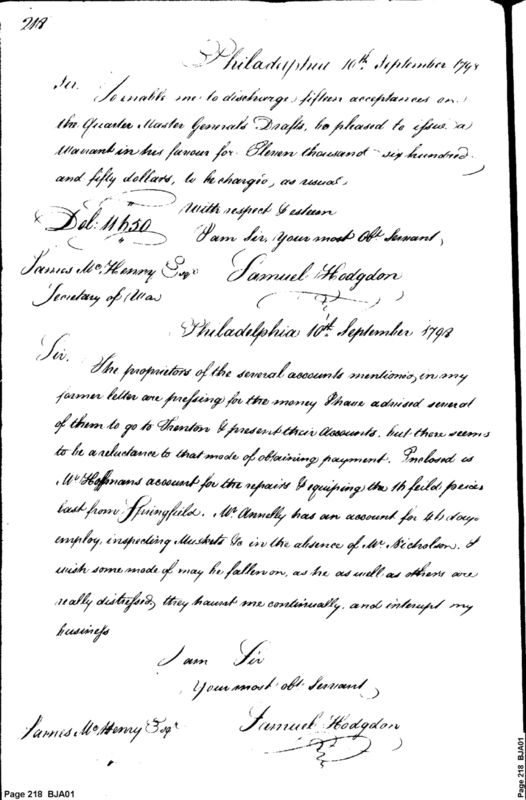 218
Philadelphia 10th. September 1798
Sir.
To enable me to discharge, fifteen acceptances on
the Quarter Master Generals Drafts, be pleased to issue a
Warrant in his favour for Eleven thousand six hundred
and fifty dollars, to be charged, as usual,
With respect & esteem
Dol: 11650
I am Sir, Your most Obt. Servant,
James Mc.Henry Esqr
Samuel Hodgdon
Secretary of War
Philadelphia 10th. September 1798
Sir.
The proprietors of the several accounts mentioned, in my
former letter are pressing for the money I have advised several
of them to go to Trenton & present their Accounts, but there seems
to be a reluctance to that mode of obtaining payment. Enclosed is
Mr Hoffmans account for the repairs & equiping the feild peices
last from Springfeild. Mr. Annelly has an account for days
employ, inspecting Muskets &c in the absence of Mr. Nicholson. I
wish some mode of may be fallen on, as he as well as others are
really distressed, they haunt me continually, and interupt my
business
I am Sir
Your most obt. Servant,
James Mc.Henry Esqr
Samuel Hodgdon
Page 218 BJA01
Page 218 BJA01